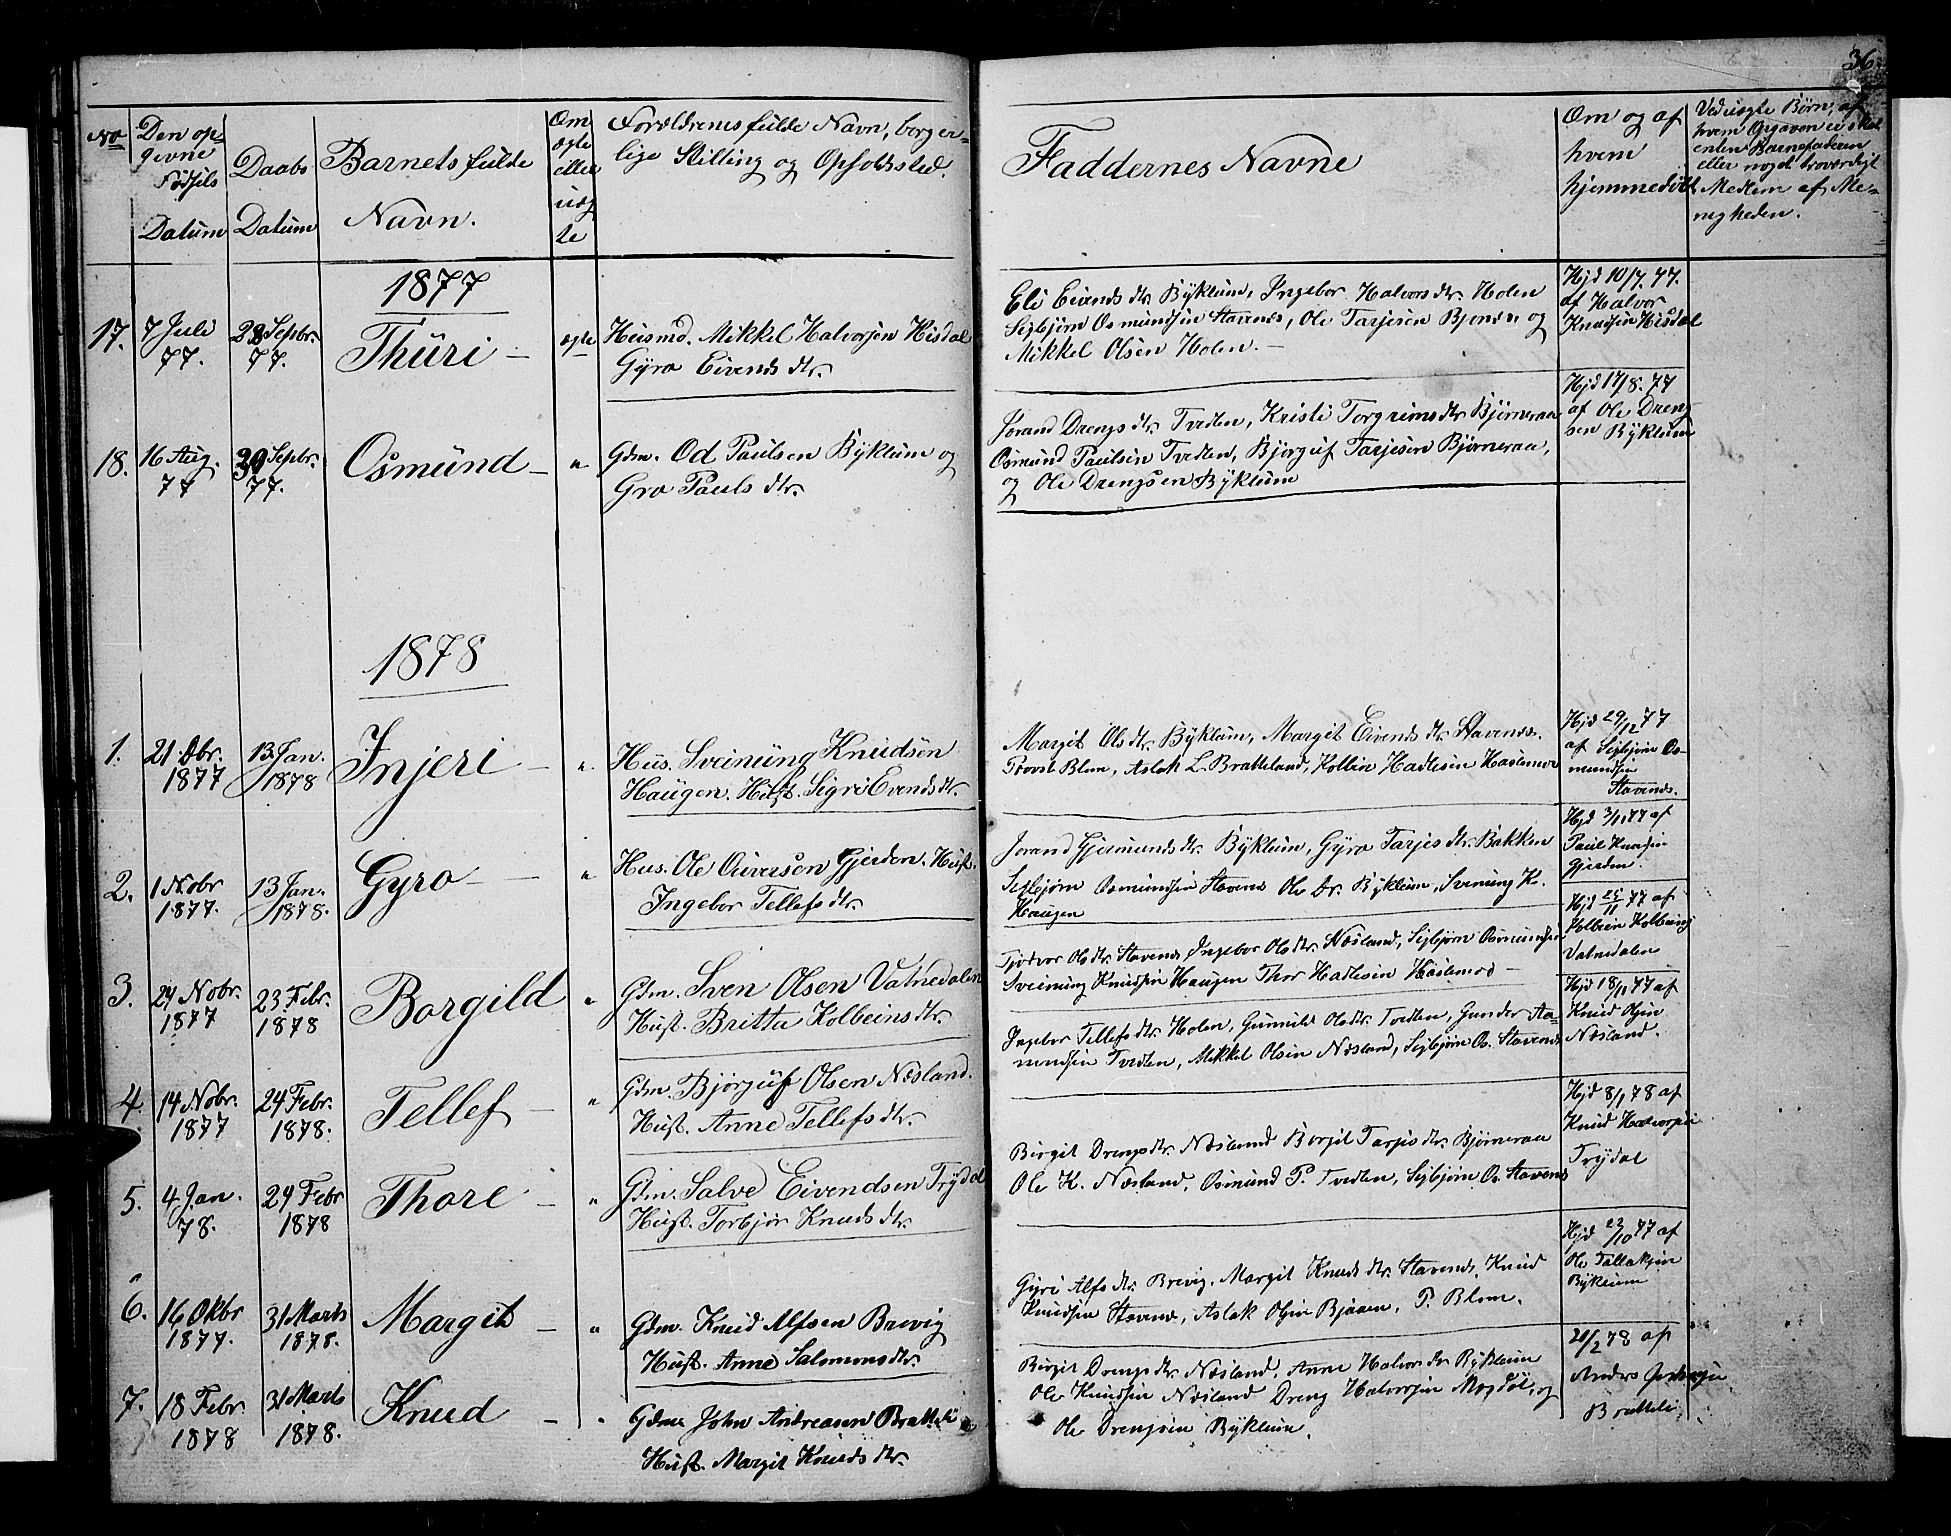 36.
No
Den op-
givne
Fødsels
Datum
Daabs
Datum
Barnets fulde
Navn.
Om
ægte
eller
uæg
te
Forældrenes fulde Navn, borger-
lige Stilling og Opholdssted.
Faddernes Navne
Om og af
hvem
hjemmedøbt
Ved uægte Børn, af
hvem Opgaven er skeet
enten Barnefaderen
eller noget troværdigt
Medlem af Me-
nigheden.
1877
17. 7 Juli
77.
Sepbr.
77.
Thüri –
ægte
Huusmd. Mikkel Halvorsen Hisdal
Gyro Eivends dtr.
Eli Eivends dtr. Bÿklum, Ingebor Halvors dtr. Holen
Seibjørn Osmundsen Stavenes, Ole Tarjesen Bjones og
Mikkel Olsen Holen. –
Hjd 10/7. 77.
af Halvor
Knudsen Hisdal
18. 16 Aug.
77
Sepbr.
77.
Osmünd –
"
Gdm. Od Paulsen Bÿklum og
Gro Pauls dtr.
Jorand Drengs dtr. Tvedten, Kristi Torgrims dtr Bjørneraa
Osmund Paulsen Tvedten, Bjørguf Tarjesen Bjørneraa,
og Ole Drengsen Bÿklum
Hjd 17/8. 77
af Ole Dreng
sen Bÿklum
1878
1. 21 Dbr.
1877
13 Jan.
1878
Injeri –
"
Hus. Sveinüng Knudsen
Haügen. Hust. Sigri Evends dtr.
Margit Ols dtr. Bÿklum, Margit Eivends dtr. Stavenes.
Provst Blom, Aslak L. Bratteland, Kolbin Hadlesen Haslemo
Hjd 29/12 77
af Seibjørn Os-
mundsen
Stavenes.
2. 1 Nobr
1877.
13 Jan.
1878.
Gyro –
"
Hus. Ole Guversen Gjerden. Hust.
Ingebor Tellefs dtr.
Jorand Gjermunds dtr. Bÿklum, Gyro Tarjes dtr. Bakken
Seibjørn Osmundsen Stavenes Ole Dr. Bÿklum, Sveinung K.
Haugen
Hjd 3/11 77 af
Paul Knudsen
Gjerden.
3. 24 Nobr.
1877
23 Febr.
1878
Borgild
"
Gdm. Sven Olsen Vatnedalen
Hust. Britta Kolbeins dtr.
Tjødvor Ols dtr. Stavenes, Ingebor Ols dtr. Næsland, Seibjørn Osmundsen
Sveinung Knudsen Haugen Thor Hadlesen Haslemo –
Hjd 25/11 77 af
Kolbein Kolbeins
Vatnedalen
4. 14 Nobr.
1877
24 Febr.
1878.
Tellef –
"
Gdm. Bjørguf Olsen Næsland.
Hust. Anne Tellefs dtr.
Ingebor Tellefs dtr. Holen, Gunnild Ols dtr. Tvedten, Gunder Aa-
mundsen Tvedten, Mikkel Olsen Næsland, Seibjørn Os. Stavenes
Hjd 18/11 77 af
Knud Olsen
Næsland.
5. 4 Jan.
78.
24 Febr
1878
Thore –
"
Gdm. Salve Eivendsen Trÿdal
Hust. Torbjør Knuds dtr.
Birgit Drengs dtr. Næsland Borgil Tarjes dtr. Bjørneraa
Ole K. Næsland, Osmund P. Tvedten, Seibjørn Os. Stavenes
Hjd 8/1 78 af
Knud Halvorsen
Trÿdal
6. 16 Oktbr
1877.
31 Marts
1878.
Margit –
"
Gdm. Knud Alfsen Brevig
Hust. Anne Salomons dtr.
Gyri Alfs dtr. Brevig. Margit Knuds dtr. Stavenes, Knud
Knudsen Stavenes, Aslak Olsen Bjaaen, P. Blom.
Hjd 23/10 77 af
Ole Tallaksen
Bÿklum
7. 18 Febr.
1878
31 Marts
1878.
Knud –
"
Gdm John Andreasen Bratteli
Hust. Margit Knuds dtr.
Birgit Drengs dtr. Næsland, Anne Halvors dtr Bÿklum
Ole Knudsen Næsland Dreng Halvorsen Mogdøl, og
Ole Drengsen Bÿklum.
20/2 78 af
Anders
Bratteli